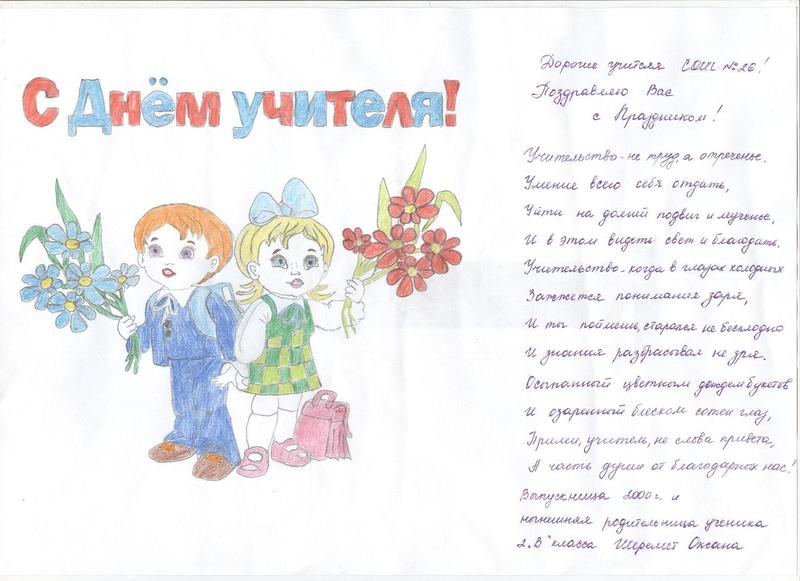 С Днём учителя!
Дорогие учителя СОШ №26!
Поздравляю Вас
с Праздником!
Учительство - не труд, а отреченье.
Умение всего себя отдать,
Уйти на долгий подвиг и мученье,
И в этом видеть свет и благодать.
Учительство - когда в глазах холодных
Зажжется понимания заря,
И ты поймешь, старался не бесплодно
И знания разбрасывал не зря.
Осыпанный цветным дождем букетов
И озаренный блеском сотен глаз,
Прими, учитель, не слова привета,
А часть души от благодарных нас!
Выпускница 2000 г. и
нынешняя родительница ученика
2 "В" класса Шеремет Оксана